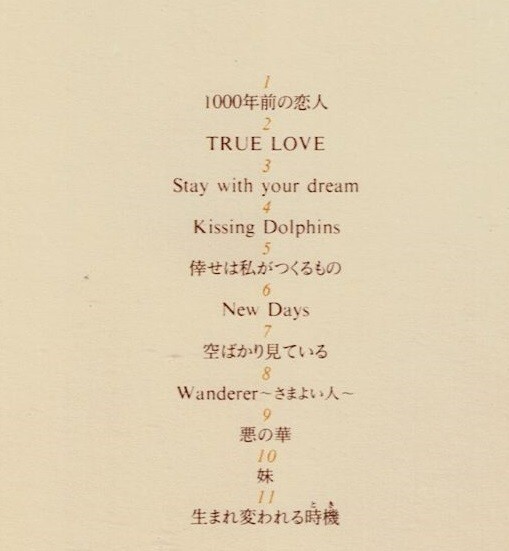 1
1000年前の恋人
2
TRUE LOVE
3
Stay with your dream
4
Kissing Dolphins
5
倖せは私がつくるもの
6
New Days
7
空ばかり見ている
8
Wanderer～さまよい人～
9
悪の華
10
妹
11
とき
生まれ変われる時機